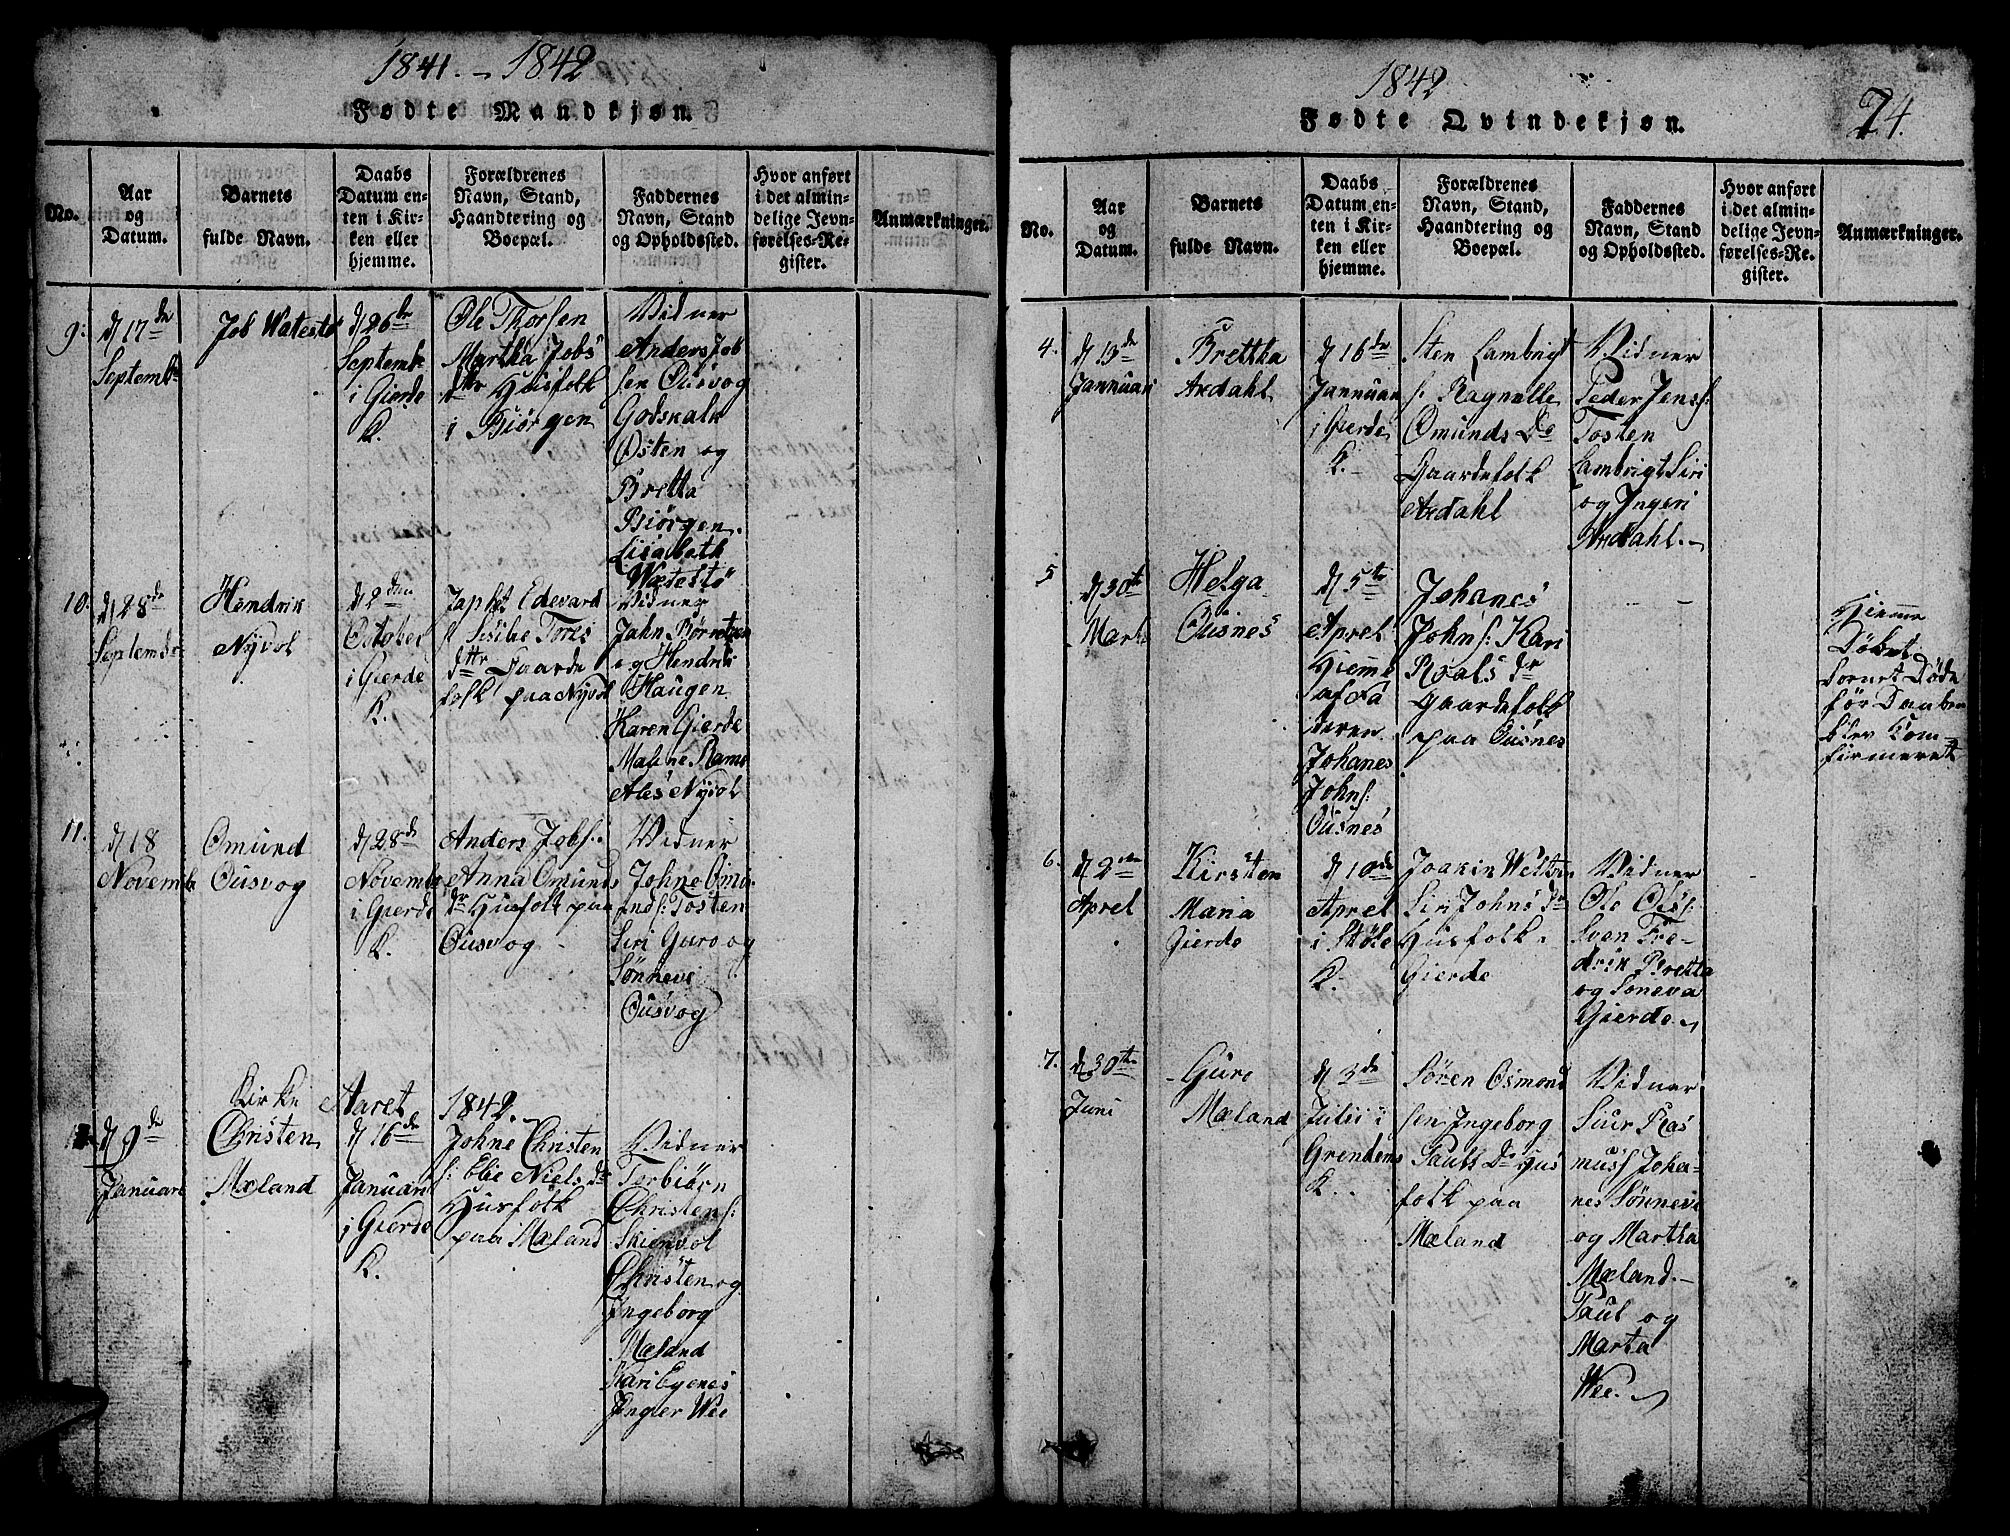 1841. - 1842
Fødte Mandkjøn.
No.
Aar
og
Datum.
Barnets
fulde Navn.
Daabs
Datum en-
ten i Kir-
ken eller
hjemme.
Forældrenes
Navn, Stand,
Haandtering og
Boepæl.
Faddernes
Navn, Stand
og Opholdssted.
Hvor anført
i det almin-
delige Jevn-
førelses-Re-
gister.
Anmærkninger.
9.
d 17de
Septemb
Job Watestø
d 26de
Septemb
i Gierde
K.
Ole Thorsen
Martha Jobs
dtr Husfolk
i Biørgen
Vidner
Anders Job
sen Ousvog
Godskalk
Østen og
Bretta
Biørgen.
Lisabeth
Wætestø
10.
d 28de
Septembr
Hendrik
Nyvol
d 2den
October
i Gierde
K.
Japhet Edevard
s Sisilie Tores
dttr Gaarde
folk paa Nyvol
Vidner
Jahn Børretzen
og Hendrik
Haugen
Karen Gierde
Malene Rams
Ales Nyvol
11.
d 18
Novemb
Omund
Ousvog
d 28de
Novemb
i Gierde
K.
Anders Jobs:
Anna Omunds
dr Husfolk paa
Ousvog
Vidner
Johne Omu
nds: Tosten
Siri Guro og
Sønnevi
Ousvog
Kirke Aaret 1842.
d 9de
Januari
Christen
Mæland
d 16de
Januari
i Gierde
K.
Johne Christen
s: Elie Niels dr
Husfolk
paa Mæland
Vidner
Torbiørn
Christens:
Skienvol
Christen og
Ingeborg
Mæland
Kari Eyenes
Ingier Wee
1842
Fødte Qvindekjøn.
74.
No.
Aar
og
Datum.
Barnets
fulde Navn.
Daabs
Datum en-
ten i Kir-
ken eller
hjemme.
Forældrenes
Navn, Stand,
Haandtering og
Boepæl.
Faddernes
Navn, Stand
og Opholdssted.
Hvor anført
i det almin-
delige Jevn-
førelses-Re-
gister.
Anmærkninger.
4.
d 13de
Jannuari
Brettha
Axdahl
d 16de
Jannuari
i Gierde
K.
Sten Lambrigt
s: Ragnille
Omunds Dr
Gaardefolk
Axdahl
Vidner
Peder Jens:
Tosten
Lambrigt Siri
og Ingeri
Axdahl.
5
d 30te
Marti
Helga
Ousnes
d 5te
Aprel
Hiemme
af Fa
deren
Johanes
Johns:
Ousnes
Johanes
Johns: Kari
Roals dr
Gaardefolk
paa Ousnes
Hiemme
Døbet
Bornet Døde
før Daaben
blev Kom-
firmeret
6.
d 2den
Aprel
Kirsten
Maria
Gierde
d 10de
Aprel
i Støle
K.
Joakin
Siri Johns dr
Husfolk
Gierde
Vidner
Ole Ols:
Sven Fre-
drik Bretta
og Soneva
Gierde.
7.
d 30te
Juni
Guro
Mæland
d 3di
Julii i
Grendems
K.
Sören Osmond
sen Ingeborg
Pauls Dr Hus
folk paa
Mæland
Vidner
Siur Ras
muss Joha-
nes Sönnevi
og Martha
Mæland.
Paul og
Marta
Wee.